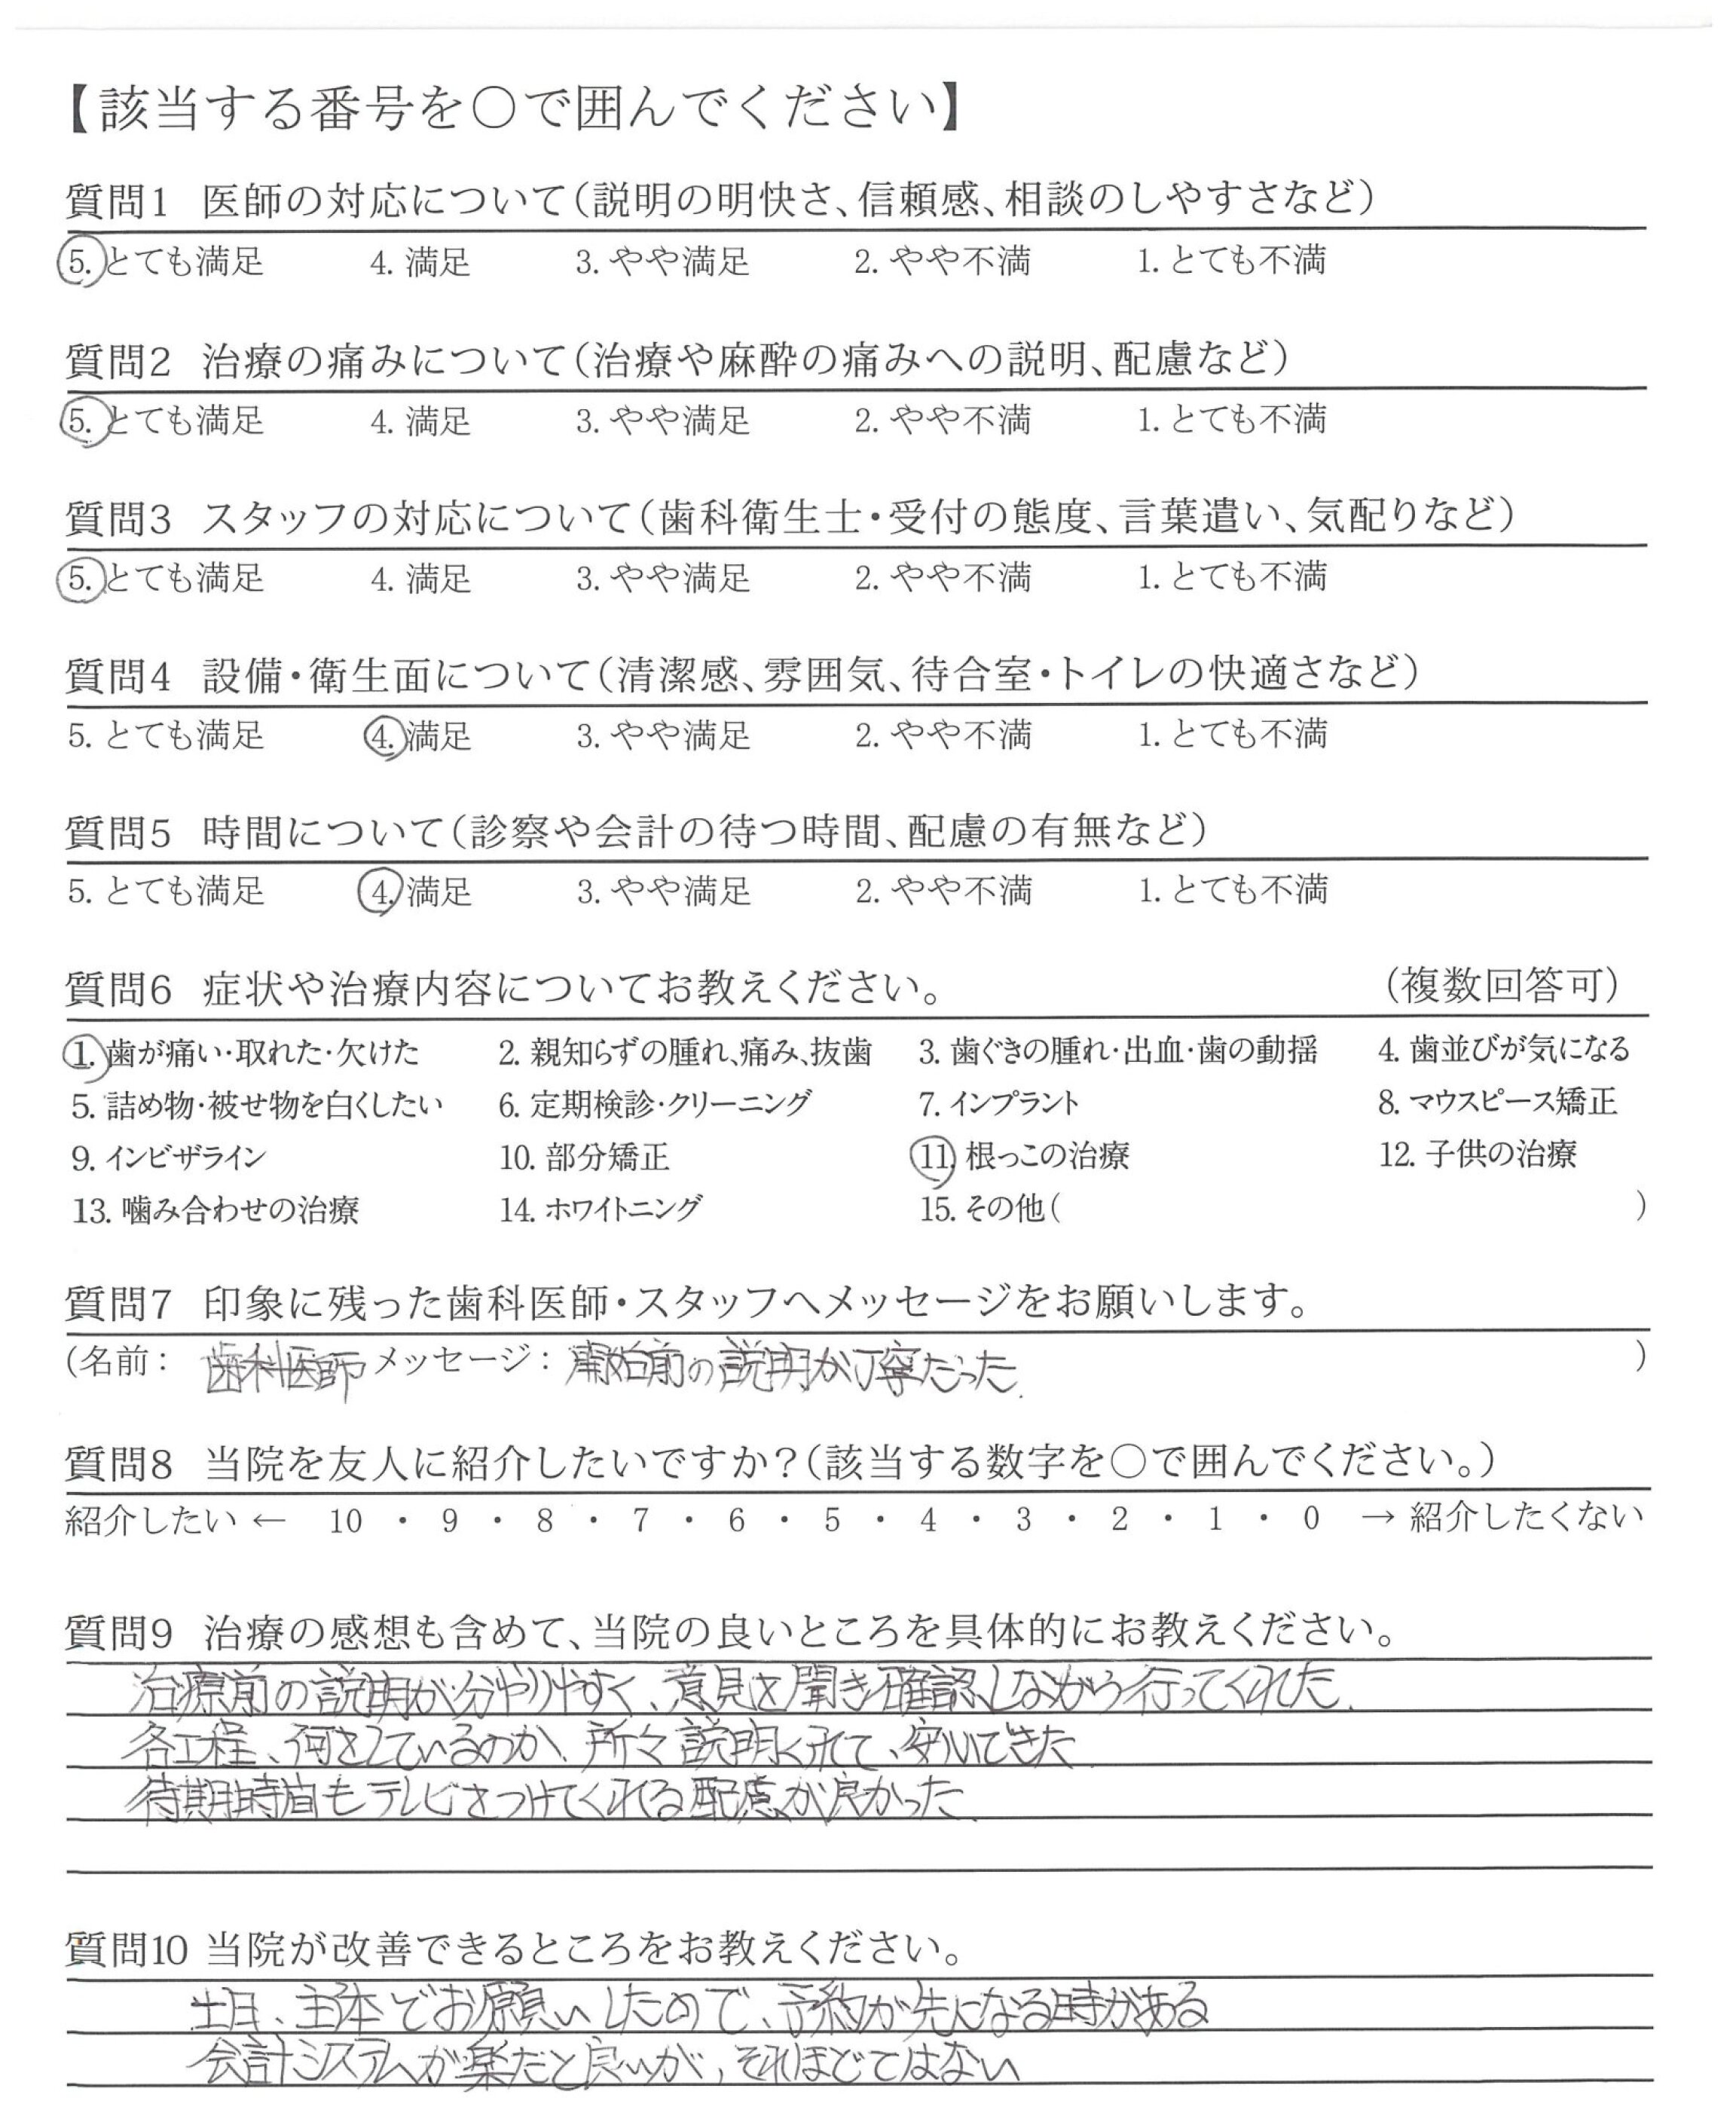 【該当する番号を○で囲んでください】
質問1 医師の対応について(説明の明快さ、信頼感、相談のしやすさなど)
5. とても満足 4. 満足 3. やや満足 2. やや不満 1. とても不満
質問2 治療の痛みについて(治療や麻酔の痛みへの説明、配慮など)
5. とても満足 4. 満足 3. やや満足 2. やや不満 1. とても不満
質問3 スタッフの対応について(歯科衛生士・受付の態度、言葉遣い、気配りなど)
5. とても満足 4. 満足 3. やや満足 2. やや不満 1. とても不満
質問4 設備・衛生面について(清潔感、雰囲気、待合室・トイレの快適さなど)
5. とても満足 4. 満足 3. やや満足 2. やや不満 1. とても不満
質問5 時間について(診察や会計の待つ時間、配慮の有無など)
5. とても満足 4. 満足 3. やや満足 2. やや不満 1. とても不満
質問6 症状や治療内容についてお教えください。 (複数回答可)
1. 歯が痛い・取れた・欠けた 2. 親知らずの腫れ、痛み、抜歯 3. 歯ぐきの腫れ・出血・歯の動揺 4. 歯並びが気になる
5. 詰め物・被せ物を白くしたい 6. 定期検診・クリーニング 7. インプラント 8. マウスピース矯正
9. インビザライン 10. 部分矯正 11. 根っこの治療 12. 子供の治療
13. 噛み合わせの治療 14. ホワイトニング 15. その他( )
質問7 印象に残った歯科医師・スタッフへメッセージをお願いします。
(名前: 歯科医師 メッセージ: 開始前の説明が丁寧だった. )
質問8 当院を友人に紹介したいですか?(該当する数字を○で囲んでください。)
紹介したい ← 10 ・ 9 ・ 8 ・ 7 ・ 6 ・ 5 ・ 4 ・ 3 ・ 2 ・ 1 ・ 0 → 紹介したくない
質問9 治療の感想も含めて、当院の良いところを具体的にお教えください。
治療前の説明が分やりやすく、意見を聞き確認しながら行ってくれた.
各工程、何をしているのか、所々説明くれて、安心できた
待期時間もテレビをつけてくれる配慮が良かった.
質問10 当院が改善できるところをお教えください。
土日、主体でお願いしたので、予約が先になる時がある
会計システムが楽だと良いが, それほどではない